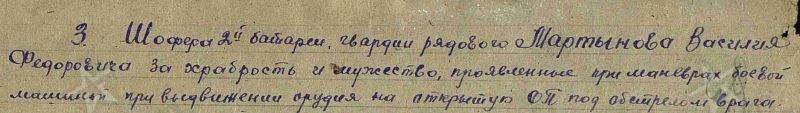 3. Шофера 2й батареи, гвардии рядового Мартынова Василия
Федоровича за храбрость и мужество, проявленные при маневрах боевой
машиной при выдвижении орудия на открытую ОП под обстрелом врага.